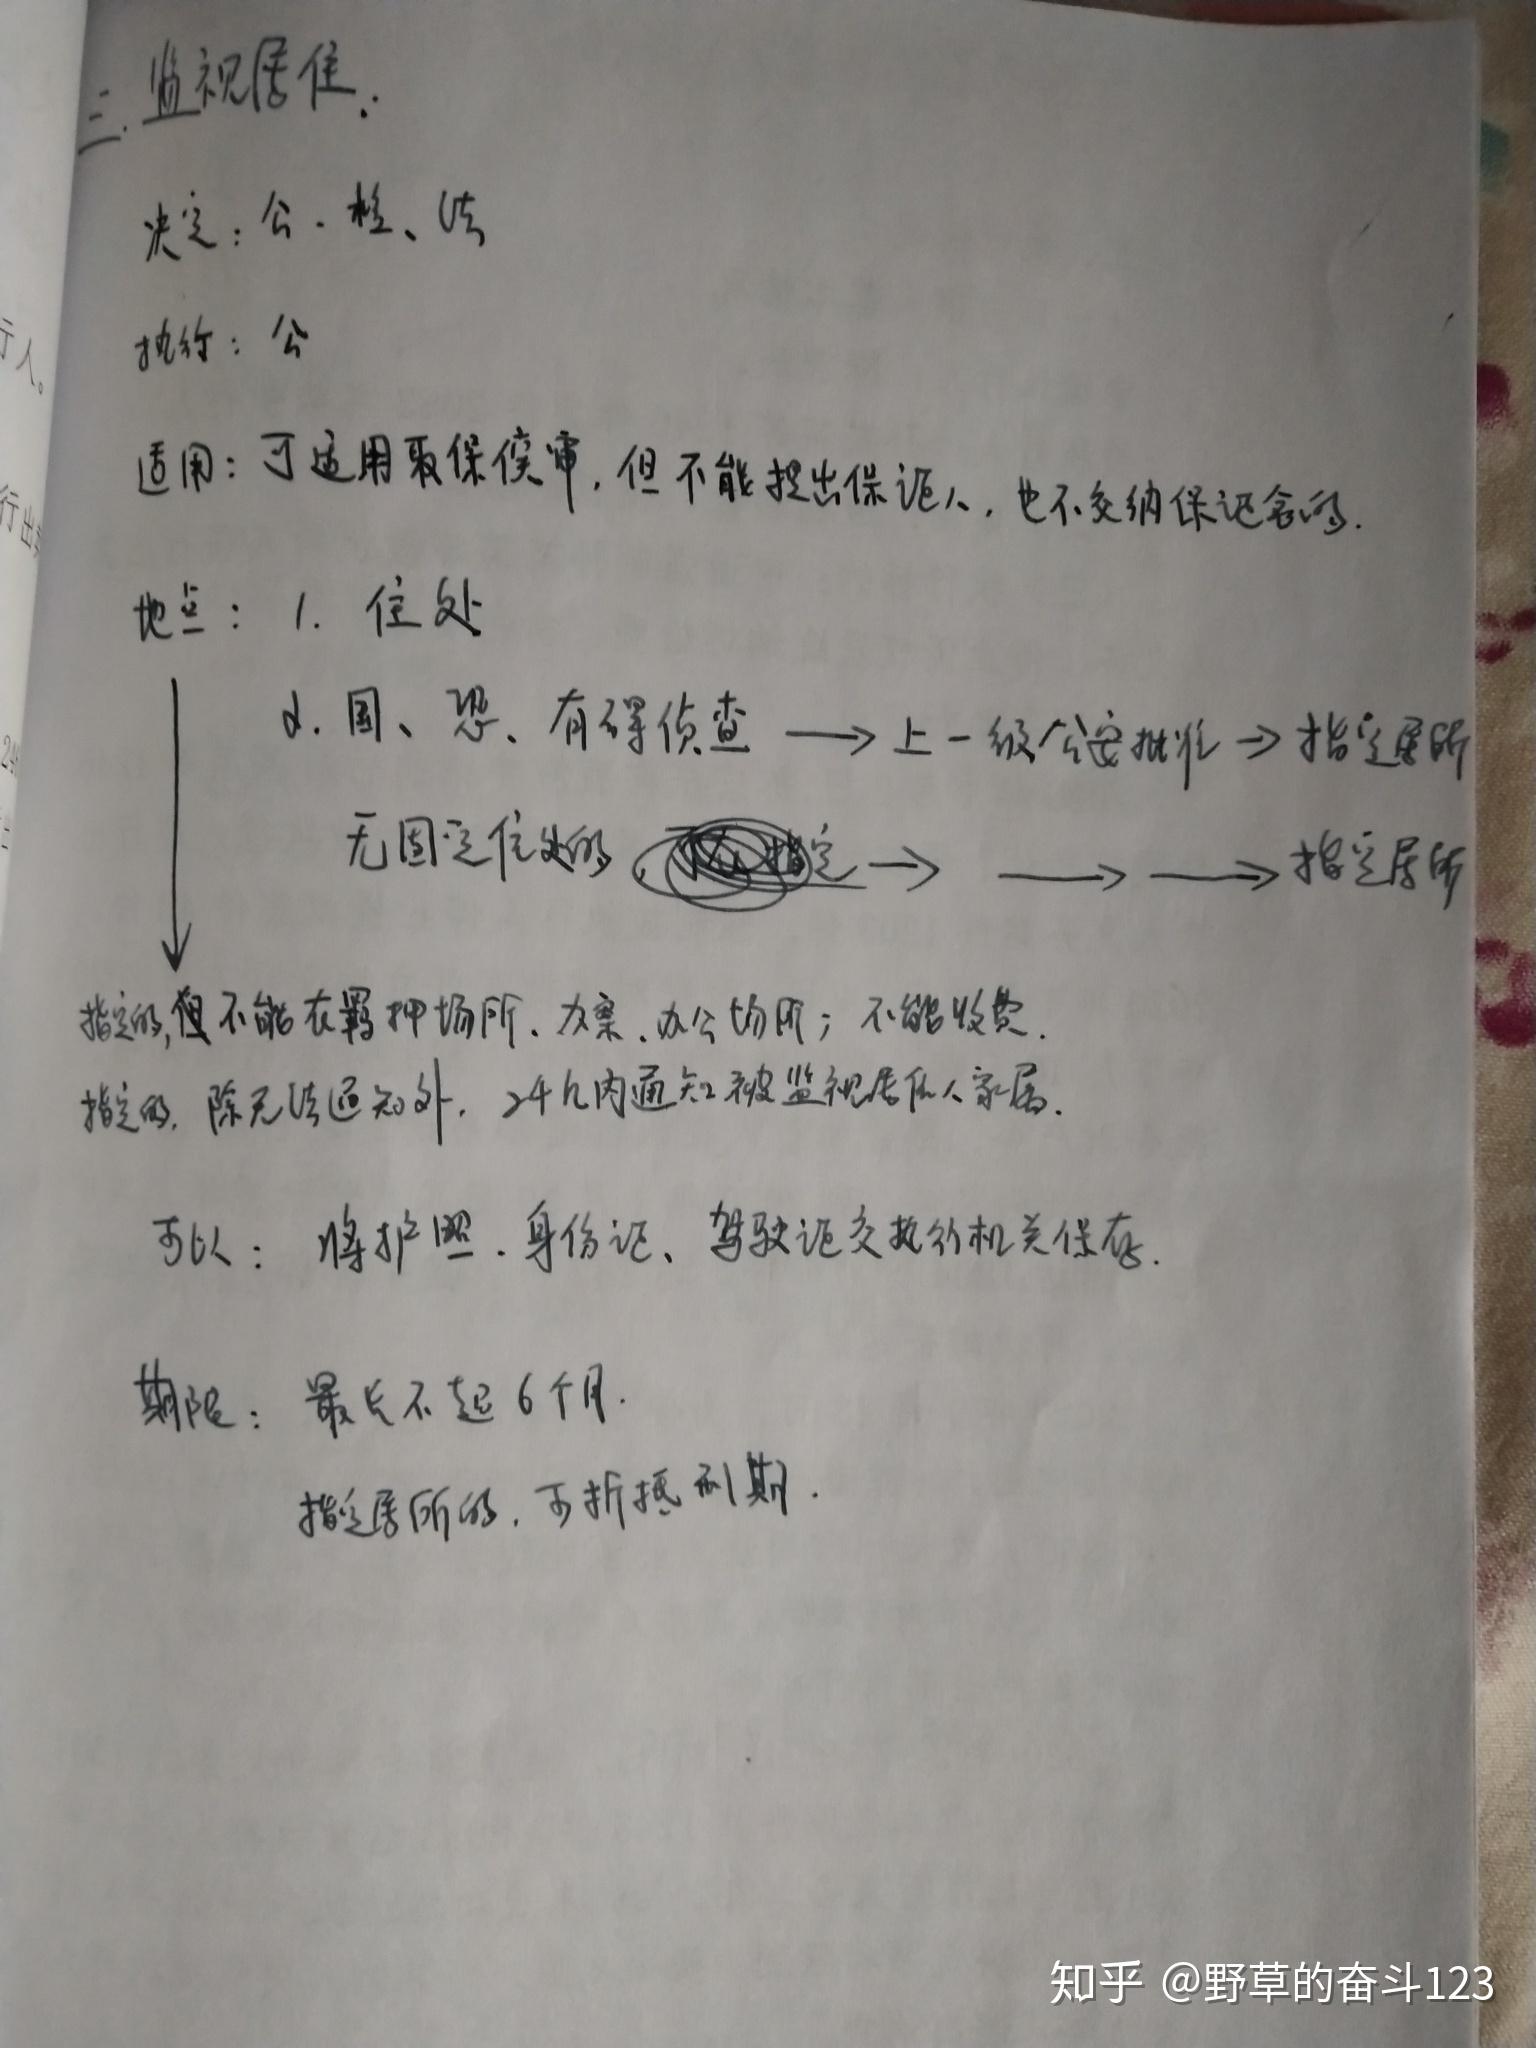 三.监视居住:
决定:公、检、法
执行:公
适用:可适用取保侯审,但不能提出保证人,也不交纳保证金的.
地点: 1. 住处
2. 国、恐、有碍侦查 → 上一级公安批准 → 指定居所
无固定住处的, 指定 → → → 指定居所
指定的,但不能在羁押场所、办案、办公场所;不能收费.
指定的,除无法通知外,24h内通知被监视居住人家属.
可以: 将护照、身份证、驾驶证交执行机关保存.
期限: 最长不超6个月.
指定居所的,可折抵刑期.
行人。
行出
知乎 @野草的奋斗123